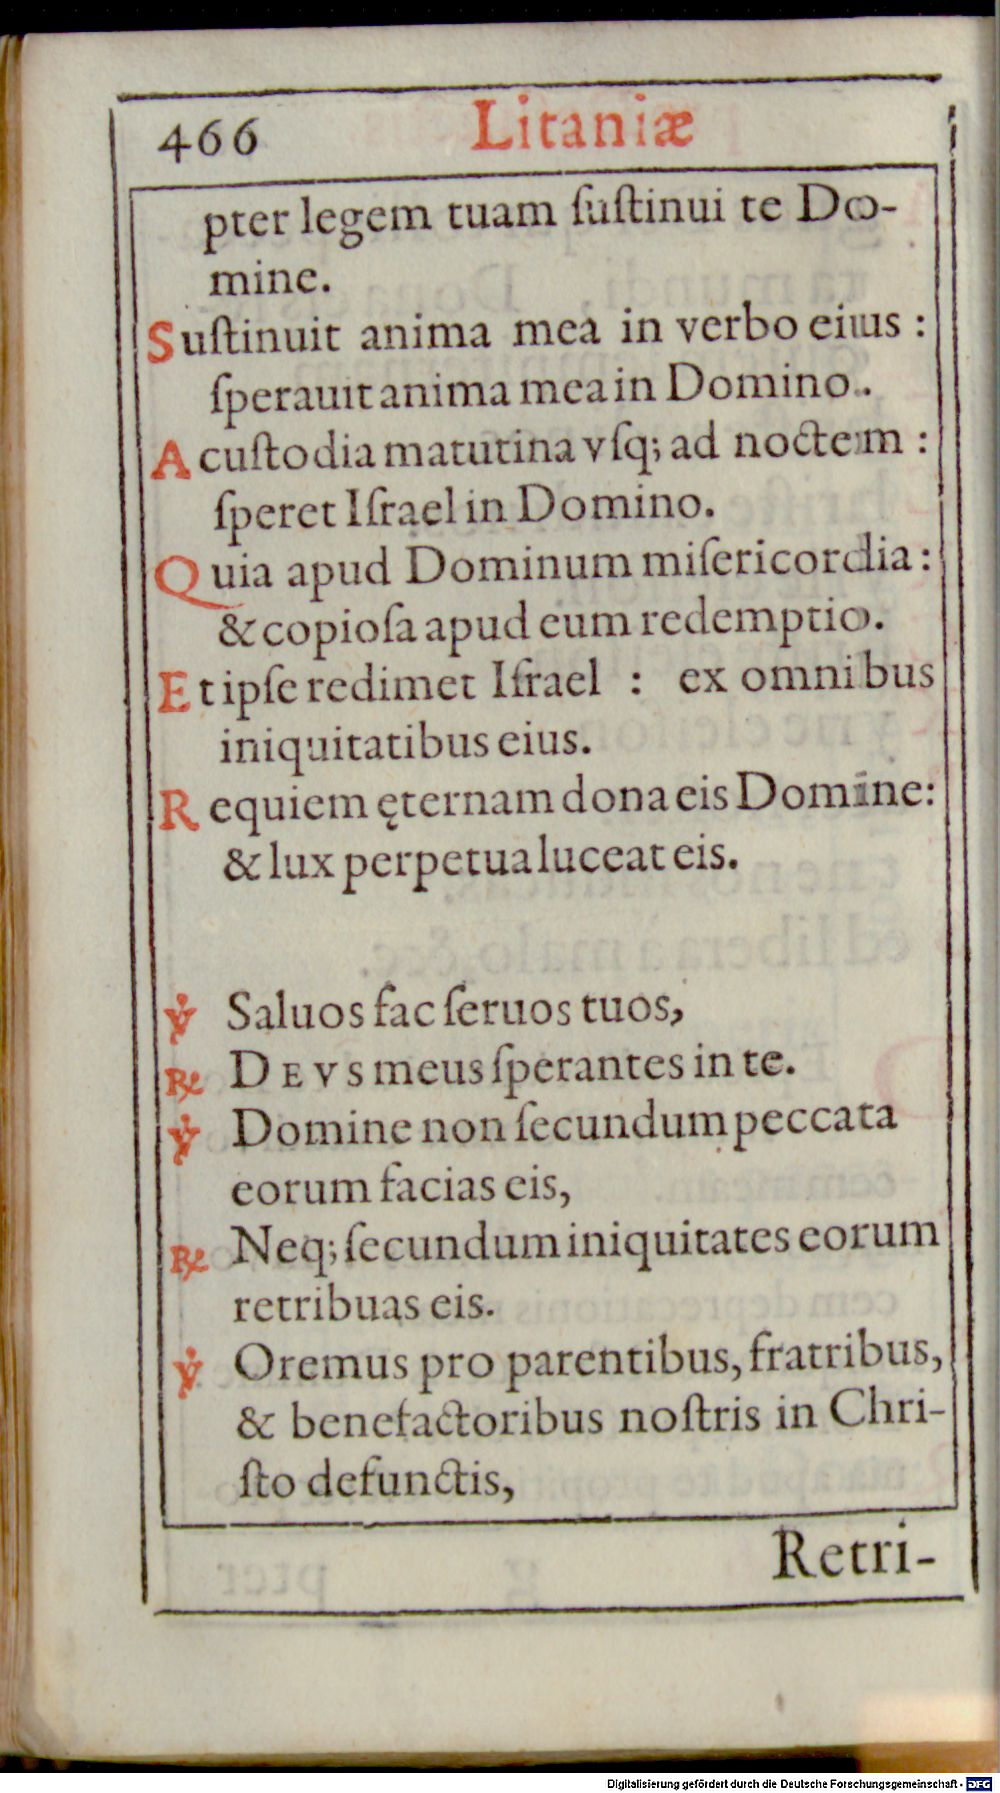 466 Litaniæ
pter legem tuam ſuſtinui te Do-
mine.
Suſtinuit anima mea in verbo eius :
ſperauit anima mea in Domino.
A cuſtodia matutina vſq; ad noctem :
ſperet Iſrael in Domino.
Quia apud Dominum miſericordia :
& copioſa apud eum redemptio.
Et ipſe redimet Iſrael : ex omnibus
iniquitatibus eius.
Requiem ęternam dona eis Domine:
& lux perpetua luceat eis.
℣ Saluos fac ſeruos tuos,
℟ DEVS meus ſperantes in te.
℣ Domine non ſecundum peccata
eorum facias eis,
℟ Neq; ſecundum iniquitates eorum
retribuas eis.
℣ Oremus pro parentibus, fratribus,
& benefactoribus noſtris in Chri-
ſto defunctis,
Retri-
Digitalisierung gefördert durch die Deutsche Forschungsgemeinschaft - DFG